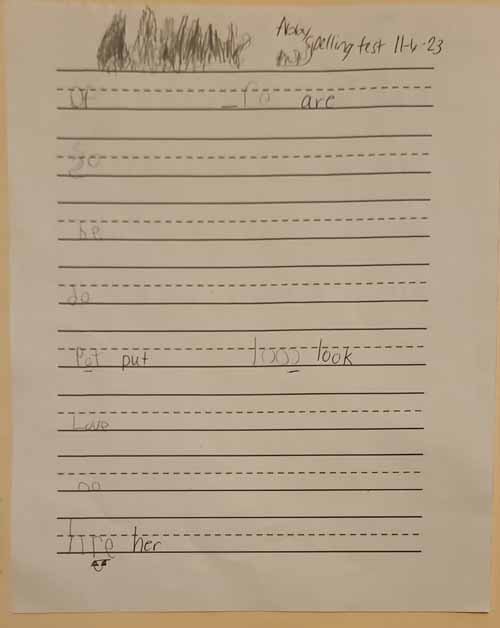 Abby spelling test 11-6-23
Of _ro are
go
he
do
Pot put looo look
Love
no
hre her